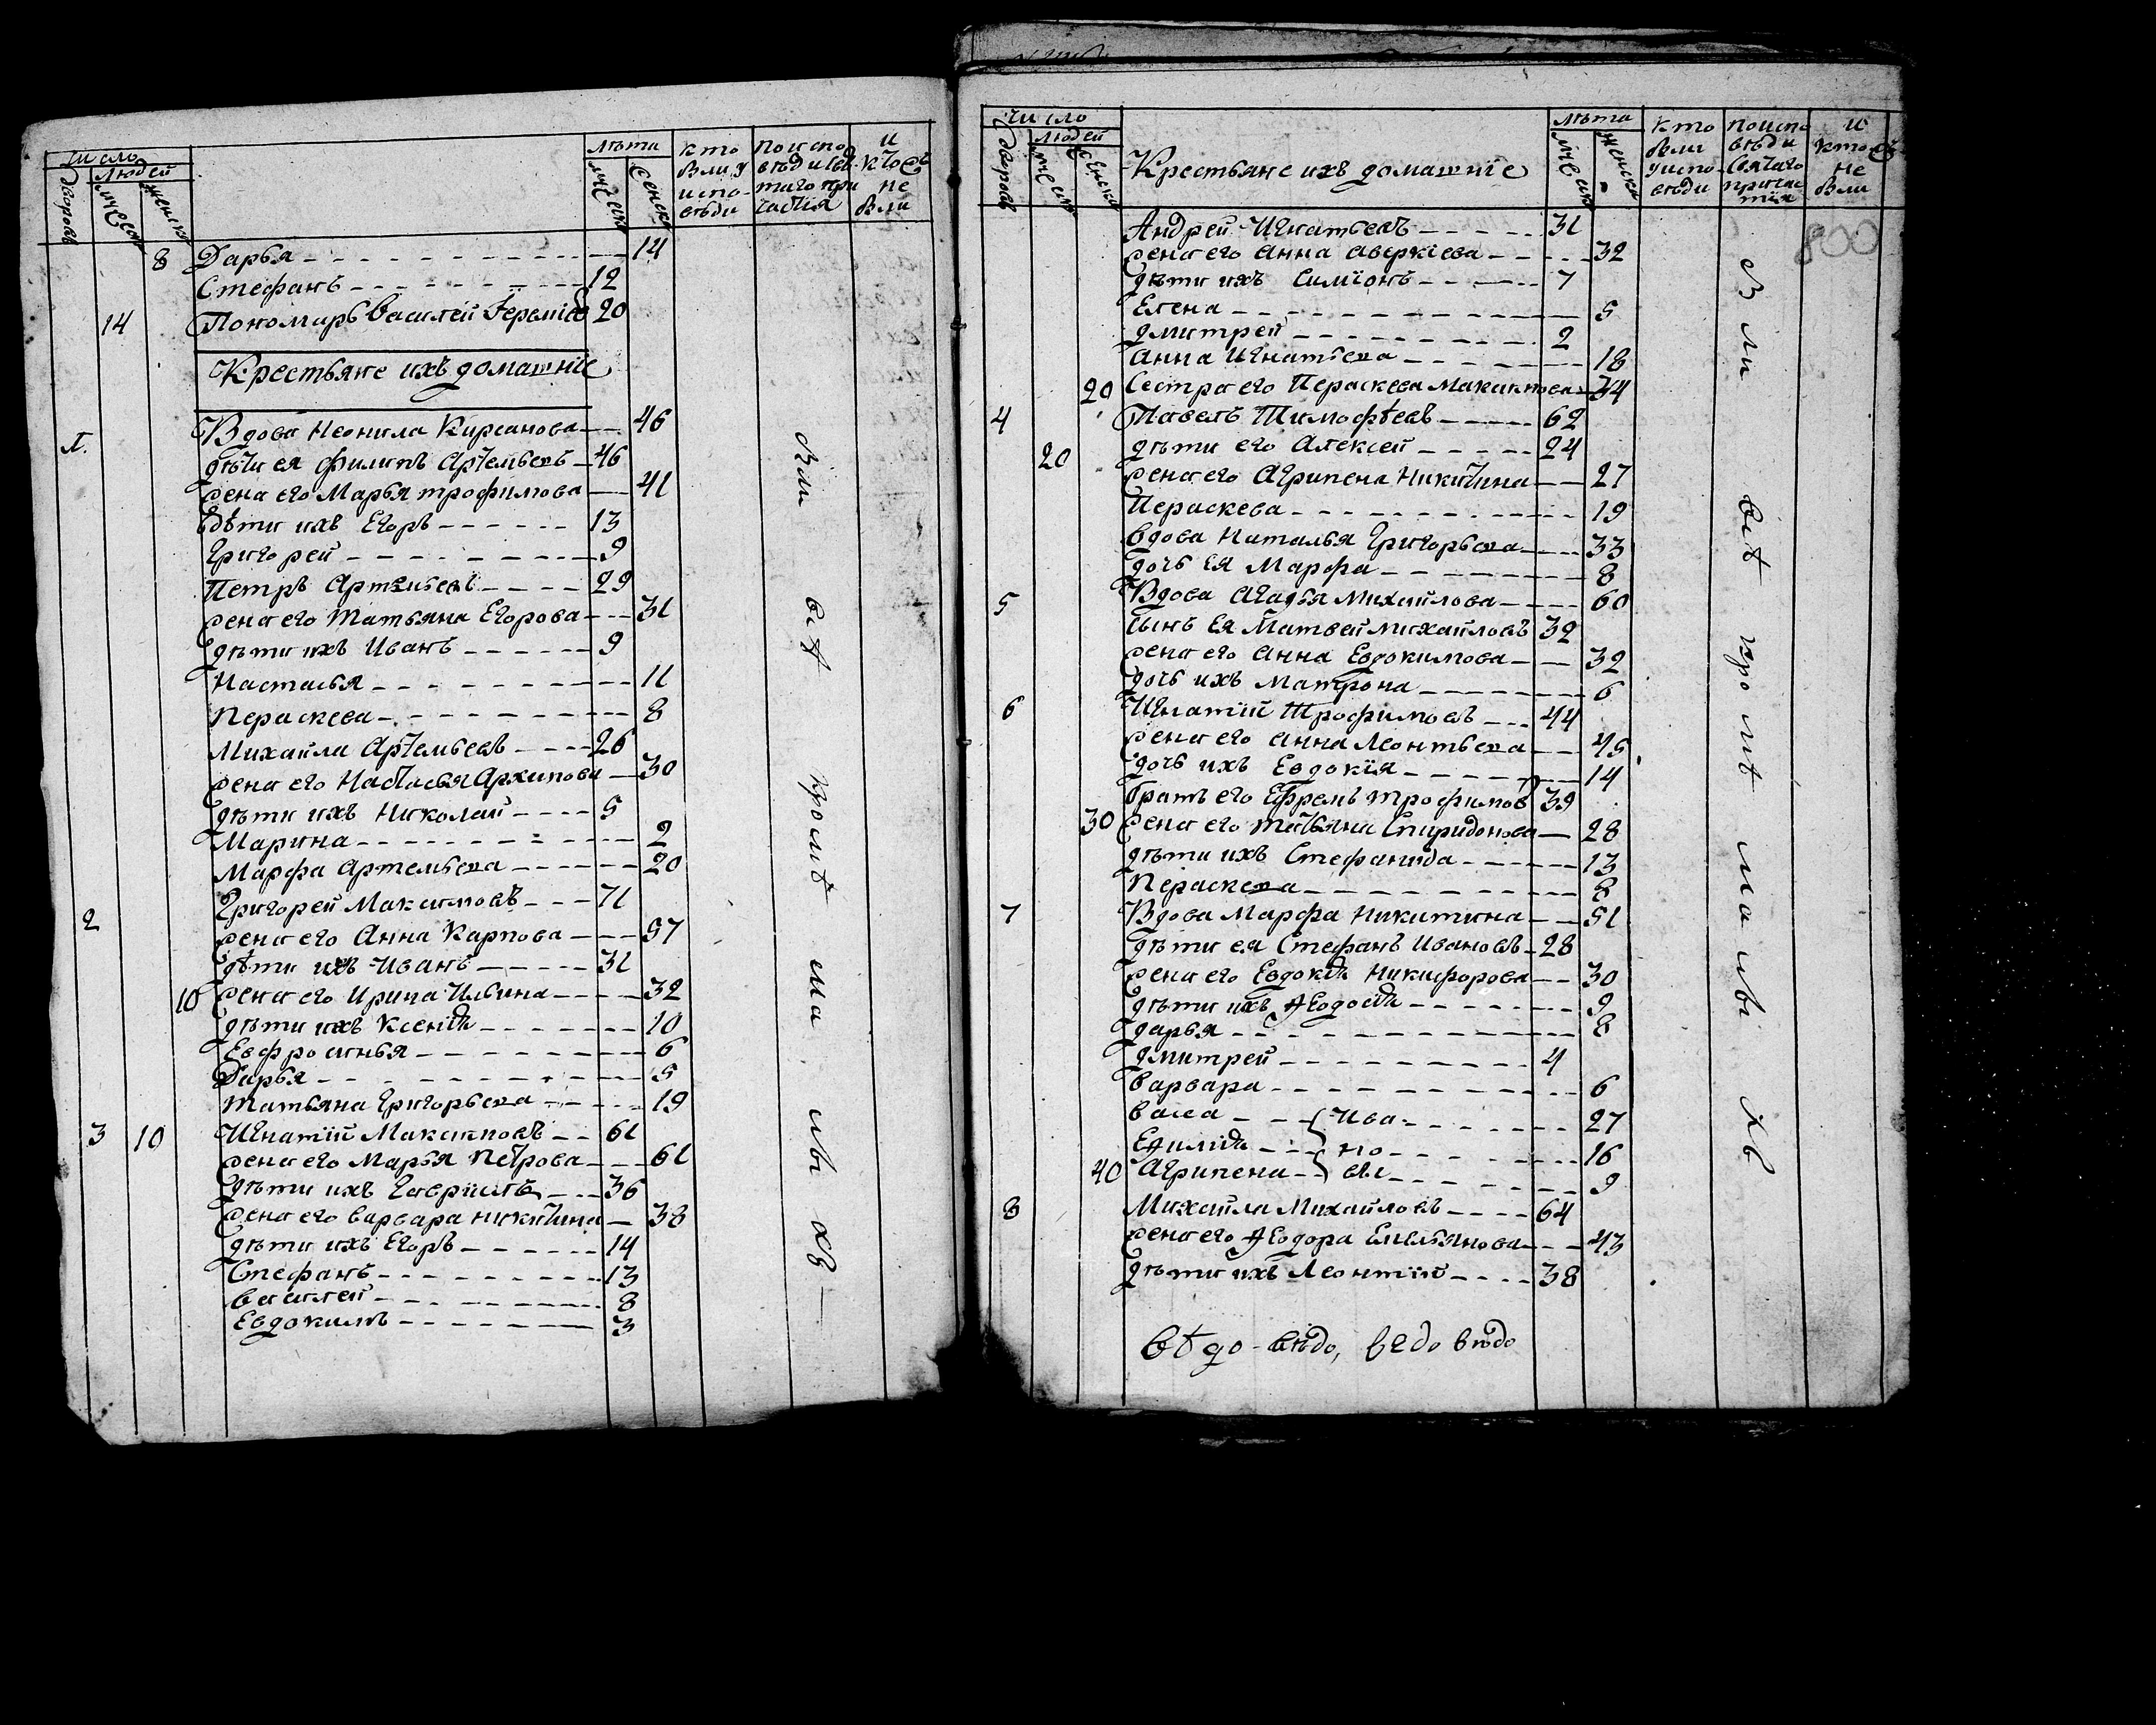 число
людей
дворовъ
мужеска
женска
лѣта
мужеска
женска
кто были у испо-вѣди
по испо вѣди свя таго при частїя
и кто съ не были
8 Дарья 14
Стефанъ 12
14 Пономарь Василей Іереміевъ 20
Крестьяне ихъ домашнїе
Вдова Неонила Кирсанова 46
дѣти ея Филипъ Артемьевъ 46
жена его Марья трофимова 41
дѣти ихъ Егоръ 13
Григорей 9
Петръ Артемьевъ 29
жена его Татьяна Егорова 31
дѣти ихъ Иванъ 9
Настасья 11
Пераскева 8
Михайла Артемьевъ 26
жена его Настасья Архипова 30
дѣти ихъ Николай 5
Марина 2
Марфа Артемьева 20
2 Григорей Максимовъ 71
жена его Анна Карпова 57
дѣти ихъ Иванъ 31
10 жена его Ирина Ильина 32
дѣти ихъ Ксенїа 10
Евфросинья 6
Дарья 5
Татьяна Григорьева 19
3 10 Игнатїй Максимовъ 61
жена его Марья Петрова 61
дѣти ихъ Гаврїилъ 36
жена его варвара никитина 38
дѣти ихъ Егоръ 14
Стефанъ 13
василей 8
Евдокимъ 3
были всѣ кромѣ
число
людей
дворовъ
мужеска
женска
Крестьяне ихъ домашнїе
лѣта
мужеска
женска
кто были у испо-вѣди
по испо вѣди святаго причас тїя
и кто съ не были
800
Андрей Игнатьевъ 31
жена его Анна Аверкїева 32
дѣти ихъ Симїонъ 7
Елена 5
дмитрей 2
Анна Игнатьева 18
20 Сестра его Пераскева Максимова 34
4 Павелъ Тимофѣевъ 62
20 дѣти его Алексей 24
жена его Агрипена Никитина 27
Пераскева 19
вдова Наталья Григорьева 33
дочь Ея Марфа 8
5 Вдова Агафья Михайлова 60
сынъ Ея Матвей Михайловъ 32
жена его Анна Евдокимова 32
дочь ихъ Матрона 6
6 Игнатїй Трофимовъ 44
жена его Анна Леонтьева 45
дочь ихъ Евдокїя 14
братъ его Ефремъ трофимовъ 39
30 жена его татьяна Спиридонова 28
дѣти ихъ Стефанида 13
Пераскева 8
7 Вдова Марфа Никитина 51
дѣти ея Стефанъ Ивановъ 28
жена его Евдокїа Никифорова 30
дѣти ихъ Ѳеодосїа 9
дарья 8
дмитрей 4
варвара 6
васса Ива 27
Еѳимїа но 16
40 Агрипена вы 9
8 Михайла Михайловъ 64
жена его Ѳеодора Емельянова 43
дѣти ихъ Леонтїй 38
были всѣ кромѣ